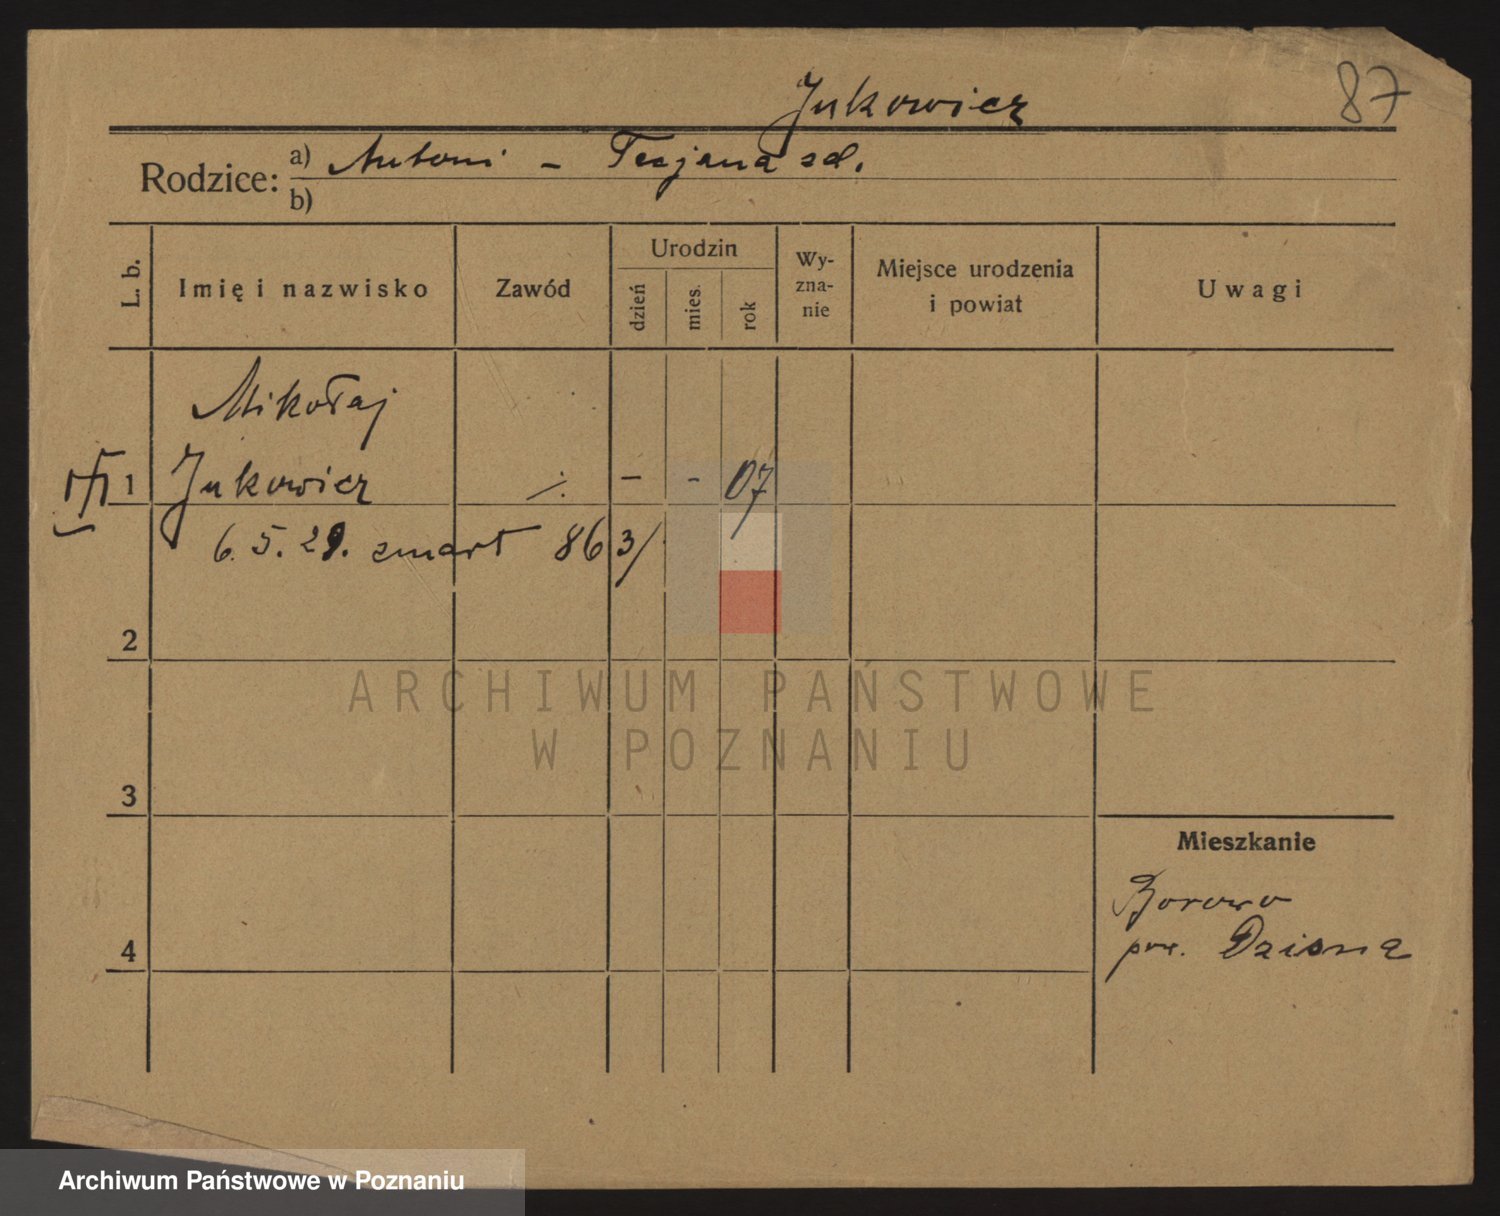 87
Jukowicz
Rodzice: a) Antoni – Tesjana zd.
b)
L. b. Imię i nazwisko Zawód Urodzin dzień mies. rok Wy-zna-nie Miejsce urodzenia i powiat Uwagi
Mikołaj
1 Jukowicz ·/. – - 07
6. 5. 29. zmarł 863/
2
ARCHIWUM PAŃSTWOWE
W POZNANIU
3
Mieszkanie
Borowo
pow. Dzisna
4
Archiwum Państwowe w Poznaniu